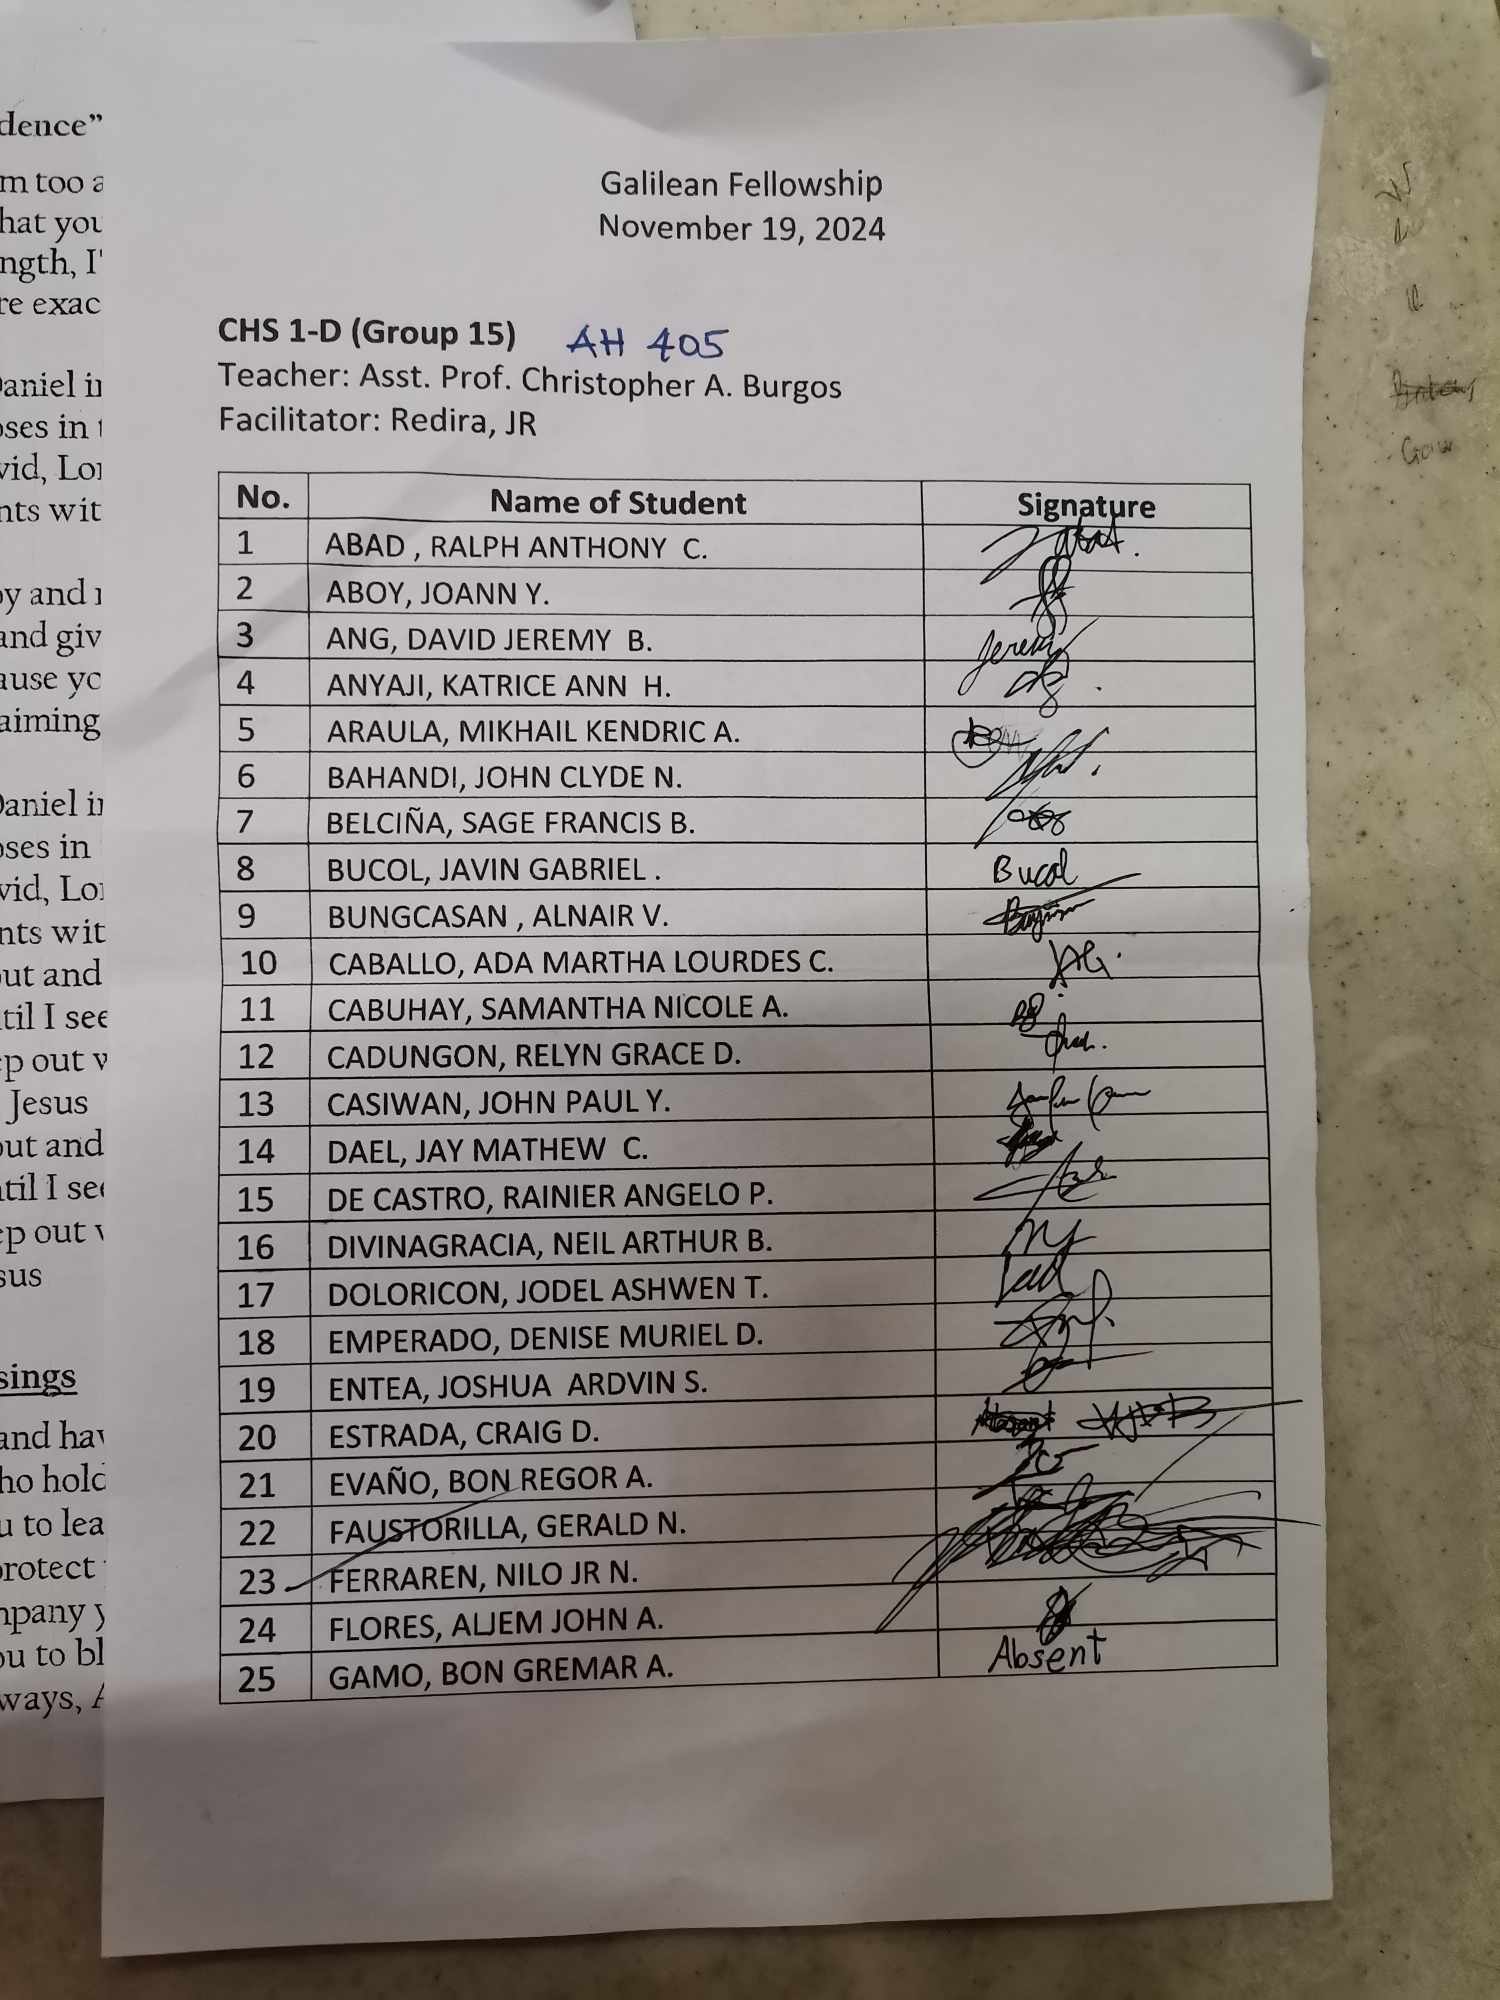 dence”
m too a
hat you
ngth, I'
re exac
Daniel in
oses in t
vid, Lor
nts wit
oy and
and giv
ause yo
aiming
Daniel in
oses in
vid, Lor
nts wit
out and
ntil I see
ep out w
Jesus
out and
ntil I see
ep out
sus
sings
and hav
ho hold
u to lea
protect
mpany y
ou to bl
ways, A
Galilean Fellowship
November 19, 2024
CHS 1-D (Group 15) AH 405
Teacher: Asst. Prof. Christopher A. Burgos
Facilitator: Redira, JR
No. Name of Student Signature
1 ABAD , RALPH ANTHONY C.
2 ABOY, JOANN Y.
3 ANG, DAVID JEREMY B. Jeremy
4 ANYAJI, KATRICE ANN H.
5 ARAULA, MIKHAIL KENDRIC A.
6 BAHANDI, JOHN CLYDE N.
7 BELCIÑA, SAGE FRANCIS B.
8 BUCOL, JAVIN GABRIEL . Bucol
9 BUNGCASAN , ALNAIR V.
10 CABALLO, ADA MARTHA LOURDES C.
11 CABUHAY, SAMANTHA NICOLE A.
12 CADUNGON, RELYN GRACE D.
13 CASIWAN, JOHN PAUL Y.
14 DAEL, JAY MATHEW C.
15 DE CASTRO, RAINIER ANGELO P.
16 DIVINAGRACIA, NEIL ARTHUR B.
17 DOLORICON, JODEL ASHWEN T.
18 EMPERADO, DENISE MURIEL D.
19 ENTEA, JOSHUA ARDVIN S.
20 ESTRADA, CRAIG D.
21 EVAÑO, BON REGOR A.
22 FAUSTORILLA, GERALD N.
23 FERRAREN, NILO JR N.
24 FLORES, ALJEM JOHN A.
25 GAMO, BON GREMAR A. Absent